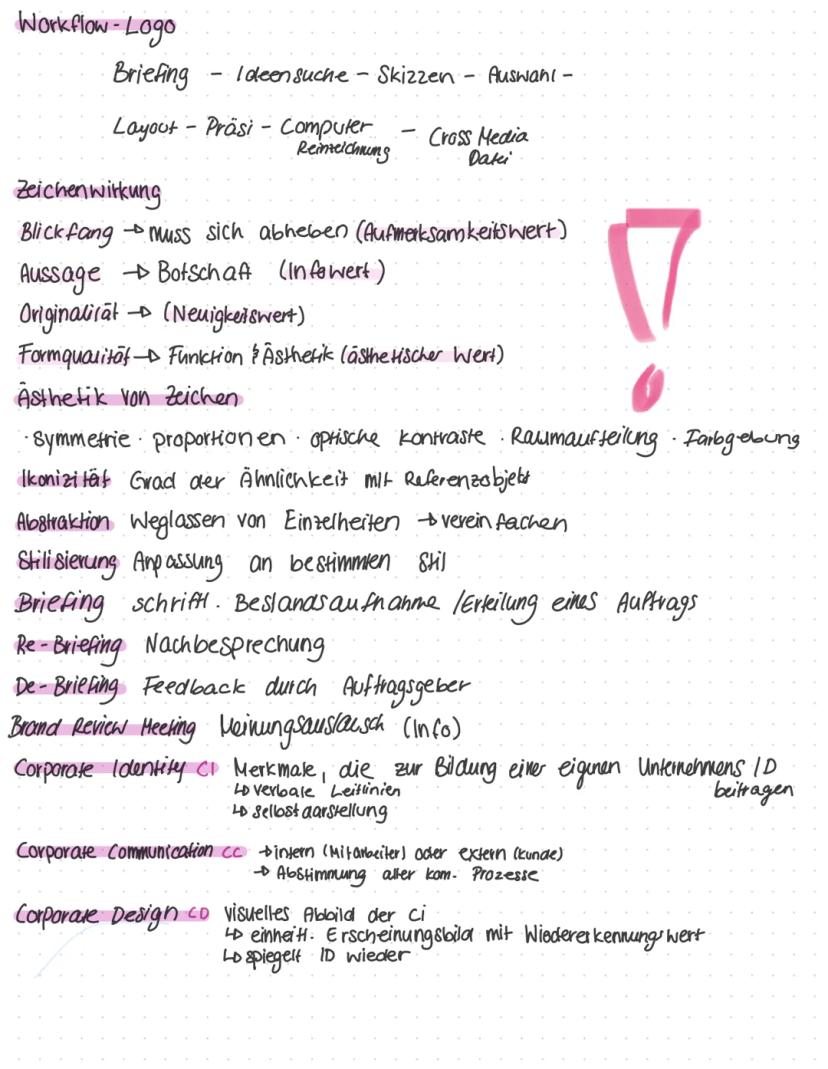 Workflow-Logo
Briefing - Ideensuche - Skizzen - Auswahl -
Layout - Präsi - Computer - Cross Media
Reinzeichnung Datei
Zeichenwirkung
Blickfang → muss sich abheben (Aufmerksamkeitswert)
Aussage → Botschaft (Infowert)
Originalität → (Neuigkeitswert)
Formqualität → Funktion & Ästhetik (ästhetischer Wert)
Ästhetik von Zeichen
· Symmetrie · proportionen · optische kontraste · Raumaufteilung · Farbgebung
Ikonizität Grad der Ähnlichkeit mit Referenzobjekt
Abstraktion Weglassen von Einzelheiten → vereinfachen
Stilisierung Anpassung an bestimmten Stil
Briefing schriftl. Bestandsaufnahme / Erteilung eines Auftrags
Re-Briefing Nachbesprechung
De-Briefing Feedback durch Auftragsgeber
Brand Review Meeting Meinungsaustausch (Info)
Corporate Identity CI Merkmale, die zur Bildung einer eigenen Unternehmens ID
↳ verbale Leitlinien beitragen
↳ selbstdarstellung
Corporate Communication CC → intern (Mitarbeiter) oder extern (kunde)
→ Abstimmung aller kom. Prozesse
Corporate Design CD visuelles Abbild der Ci
↳ einheitl. Erscheinungsbild mit Wiedererkennungswert
↳ spiegelt ID wieder